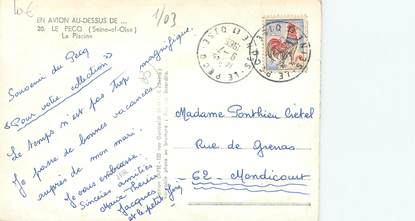 10€
1/03
EN AVION AU-DESSUS DE ...
20. LE PECQ (Seine-et-Oise)
La Piscine
Souvenir du Pecq
"Pour votre collection"
Le temps n'est pas trop magnifique.
Je passe de bonnes vacances
auprès de mon mari.
Je vous embrasse.
Sincères amitiés
Marie Thérèse
Jacques
et le petit
LE PECQ
SEINE ET OISE
Madame Ponthieu Crétel
Rue de Grenas
62 - Mondicourt